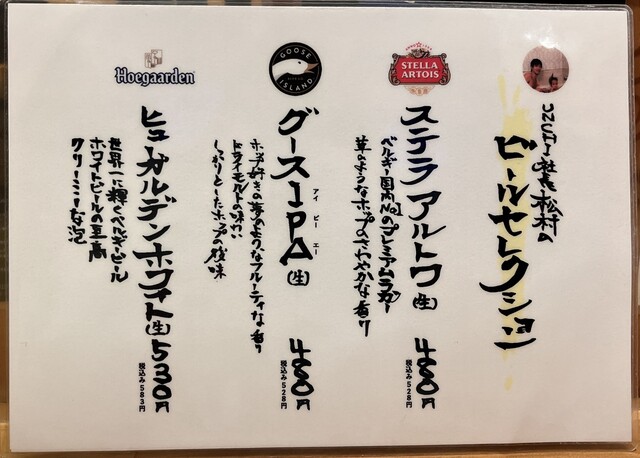 社長松村の
ビールセレクション
STELLA
ARTOIS
ステラアルトワ(生)
480円
税込み528円
ベルギー国内No.1のプレミアムラガー
草のようなホップのさわやかな香り
GOOSE
ISLAND
グースIPA(生)
アイ ピー エー
480円
税込み528円
ホップ好きの夢のようなフルーティな香り
ドライモルトの味わい
しっかりとしたホップの後味
Hoegaarden
ヒューガルデンホワイト(生)
530円
税込み583円
世界一に輝くベルギービール
ホワイトビールの至高
クリーミーな泡